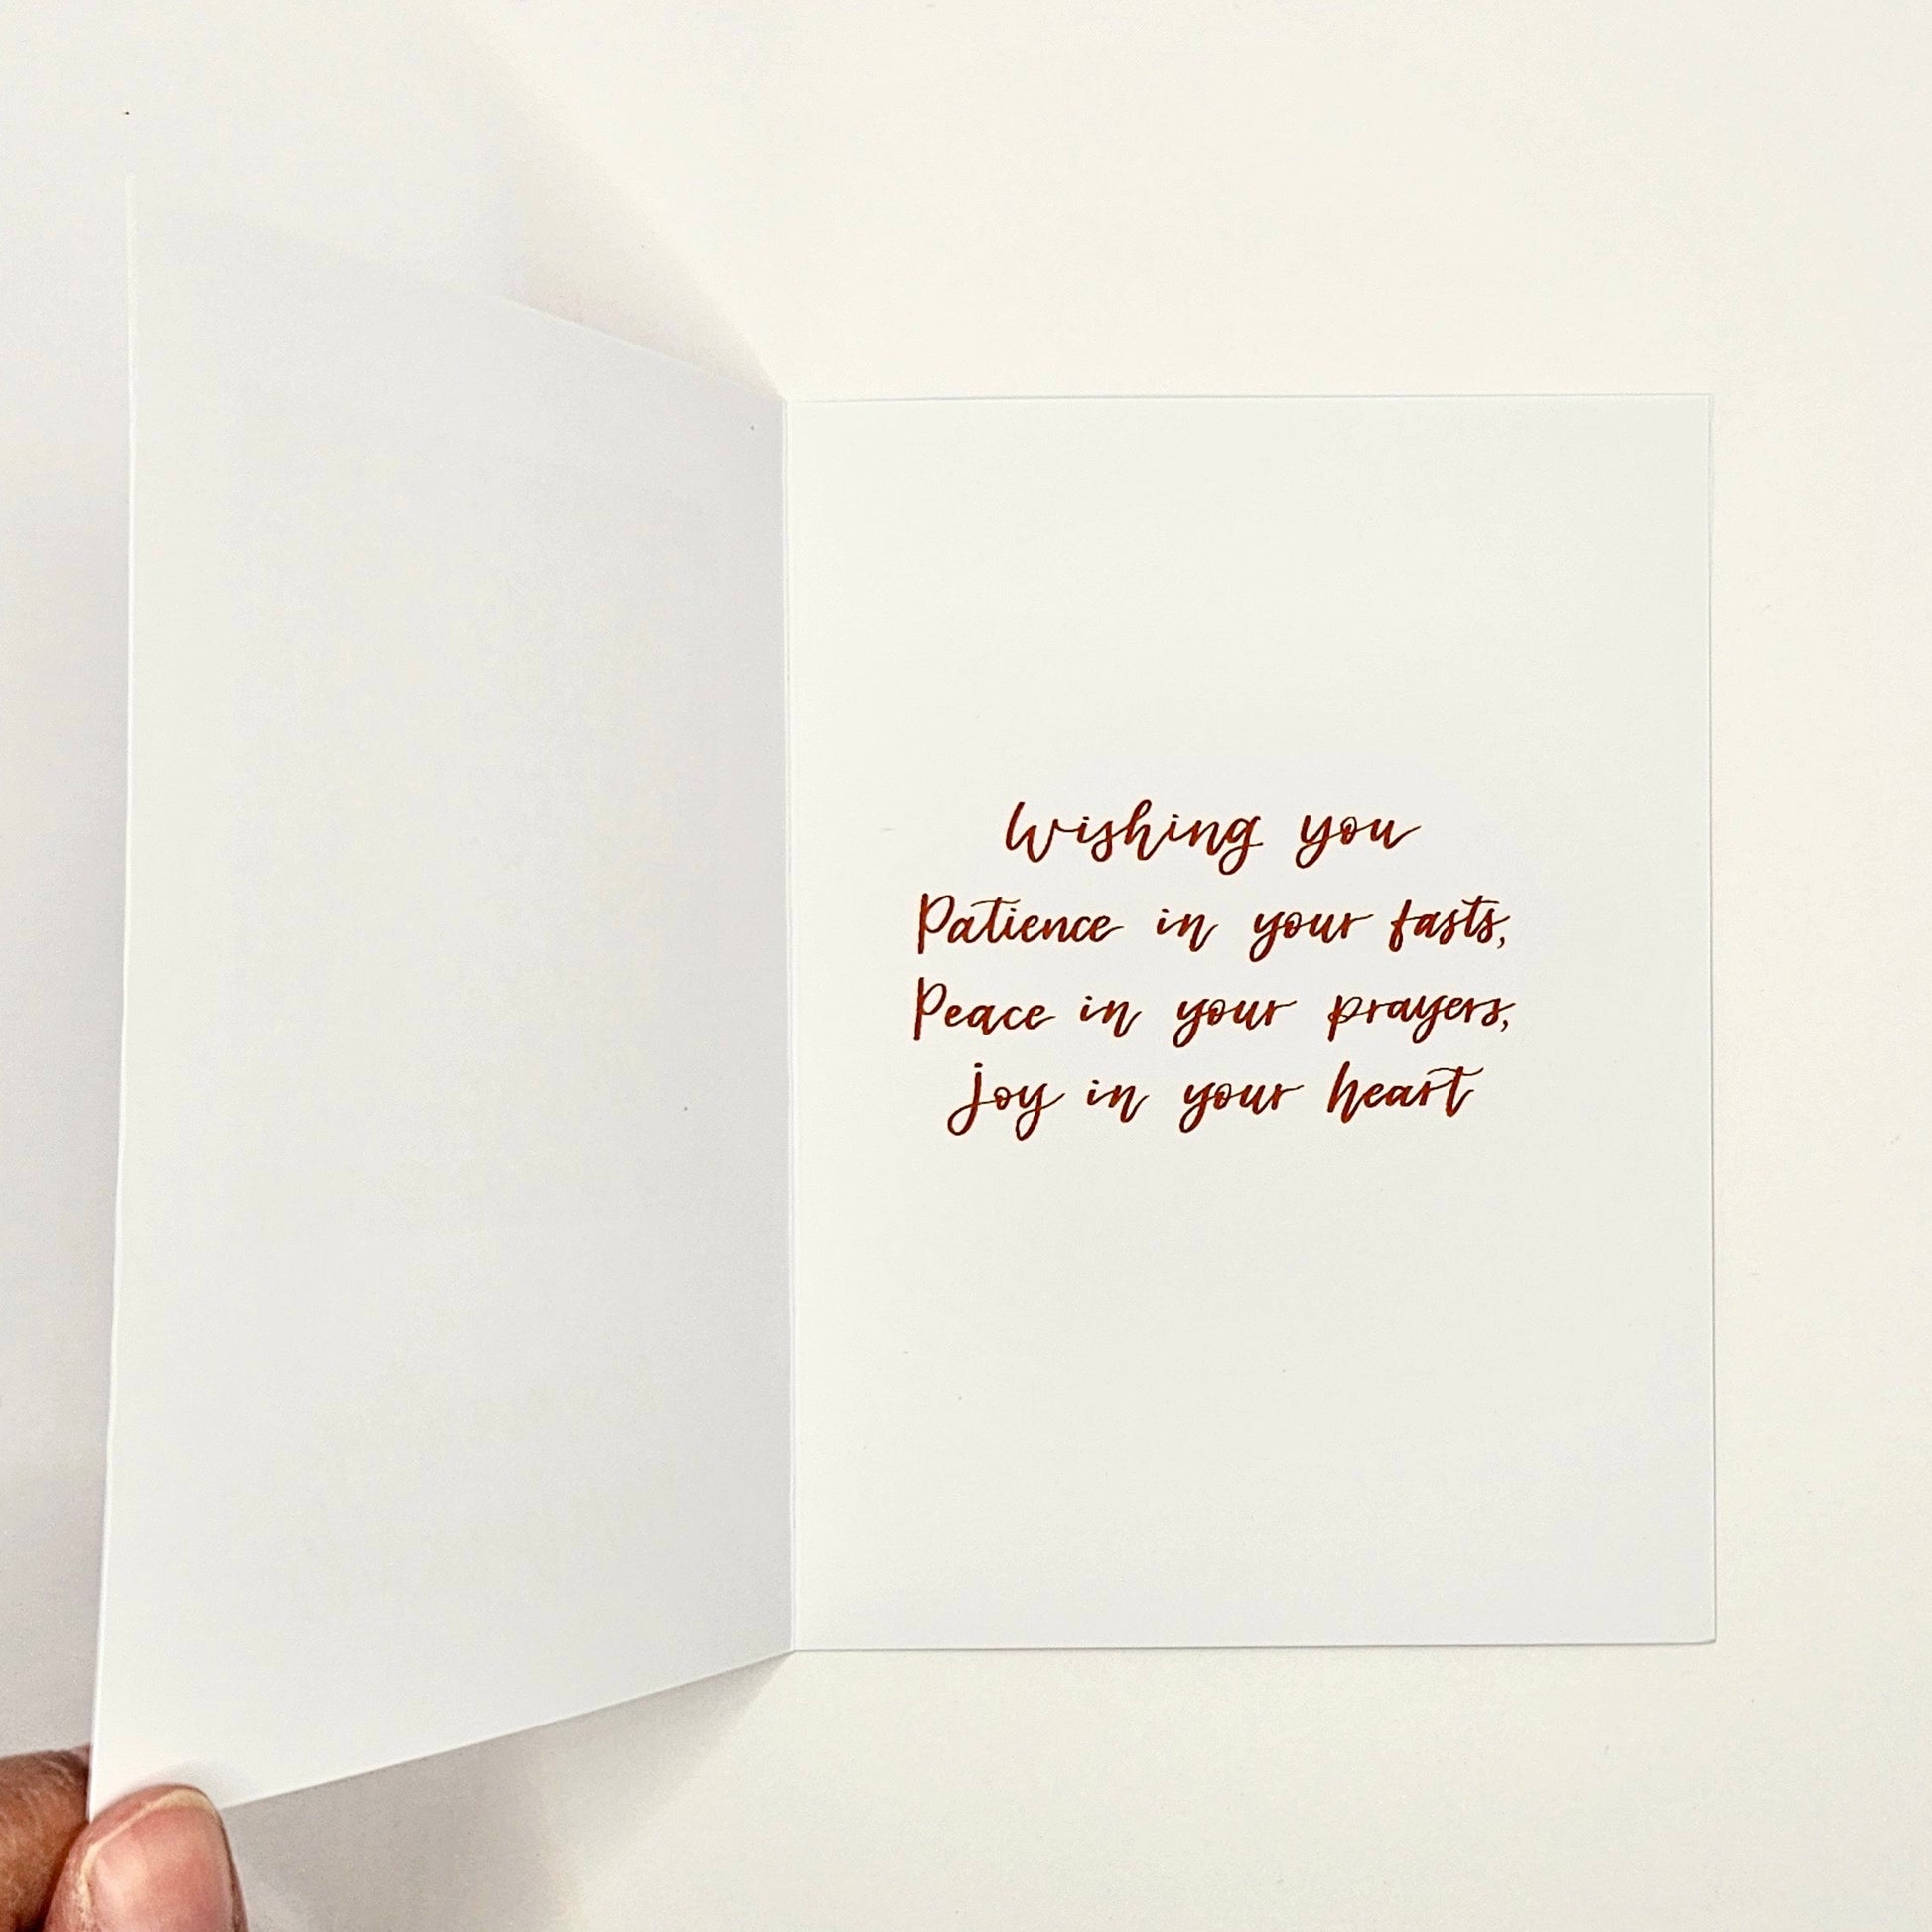 Wishing you
Patience in your fasts,
Peace in your prayers,
Joy in your heart